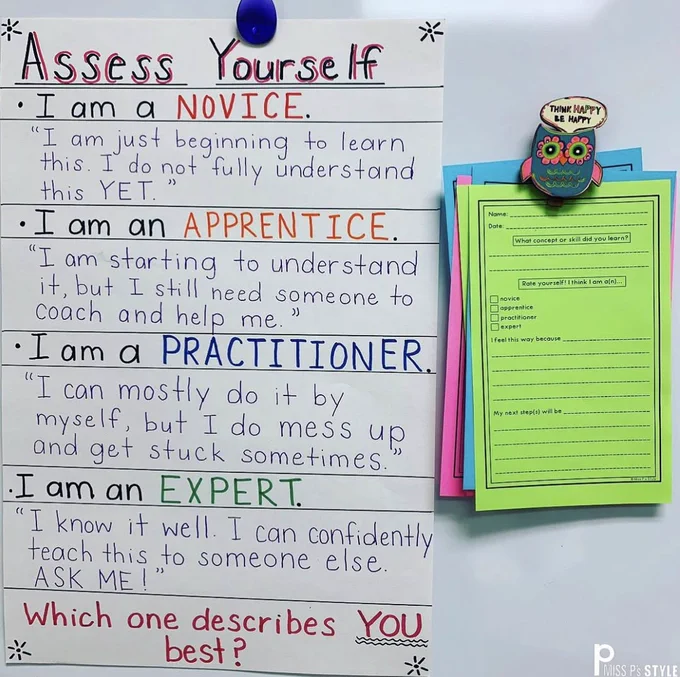 Assess Yourself
• I am a NOVICE.
"I am just beginning to learn
this. I do not fully understand
this YET."
• I am an APPRENTICE.
"I am starting to understand
it, but I still need someone to
coach and help me."
• I am a PRACTITIONER.
"I can mostly do it by
myself, but I do mess up
and get stuck sometimes."
• I am an EXPERT.
"I know it well. I can confidently
teach this to someone else.
ASK ME!"
Which one describes YOU
best?
THINK HAPPY
BE HAPPY
Name:
Date:
What concept or skill did you learn?
Rate yourself! I think I am a(n)...
novice
apprentice
practitioner
expert
I feel this way because
My next step(s) will be
MISS P's STYLE